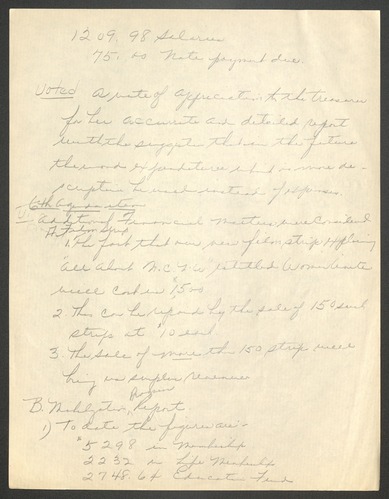 1209.98 Salaries
75.00 Note payment due.
Voted a vote of appreciation to the treasurer
for her accurate and detailed report
with the suggestion that in the future
the word expenditures which is more de-
scriptive be used instead of expenses.
Additional Financial Matters were Considered
A. Film Strip
1. The fact that our new film strip explaining
all about N.C.N.W. entitled Women Unite
will cost us $1500
2. This can be repaid by the sale of 150 such
strips at $10 each
3. The sale of more than 150 strips will
bring us surplus revenue
B. Mobilization Report
1) To date the figures are:-
$5298 in Membership
2232 in Life Membership
2748.64 Education Fund